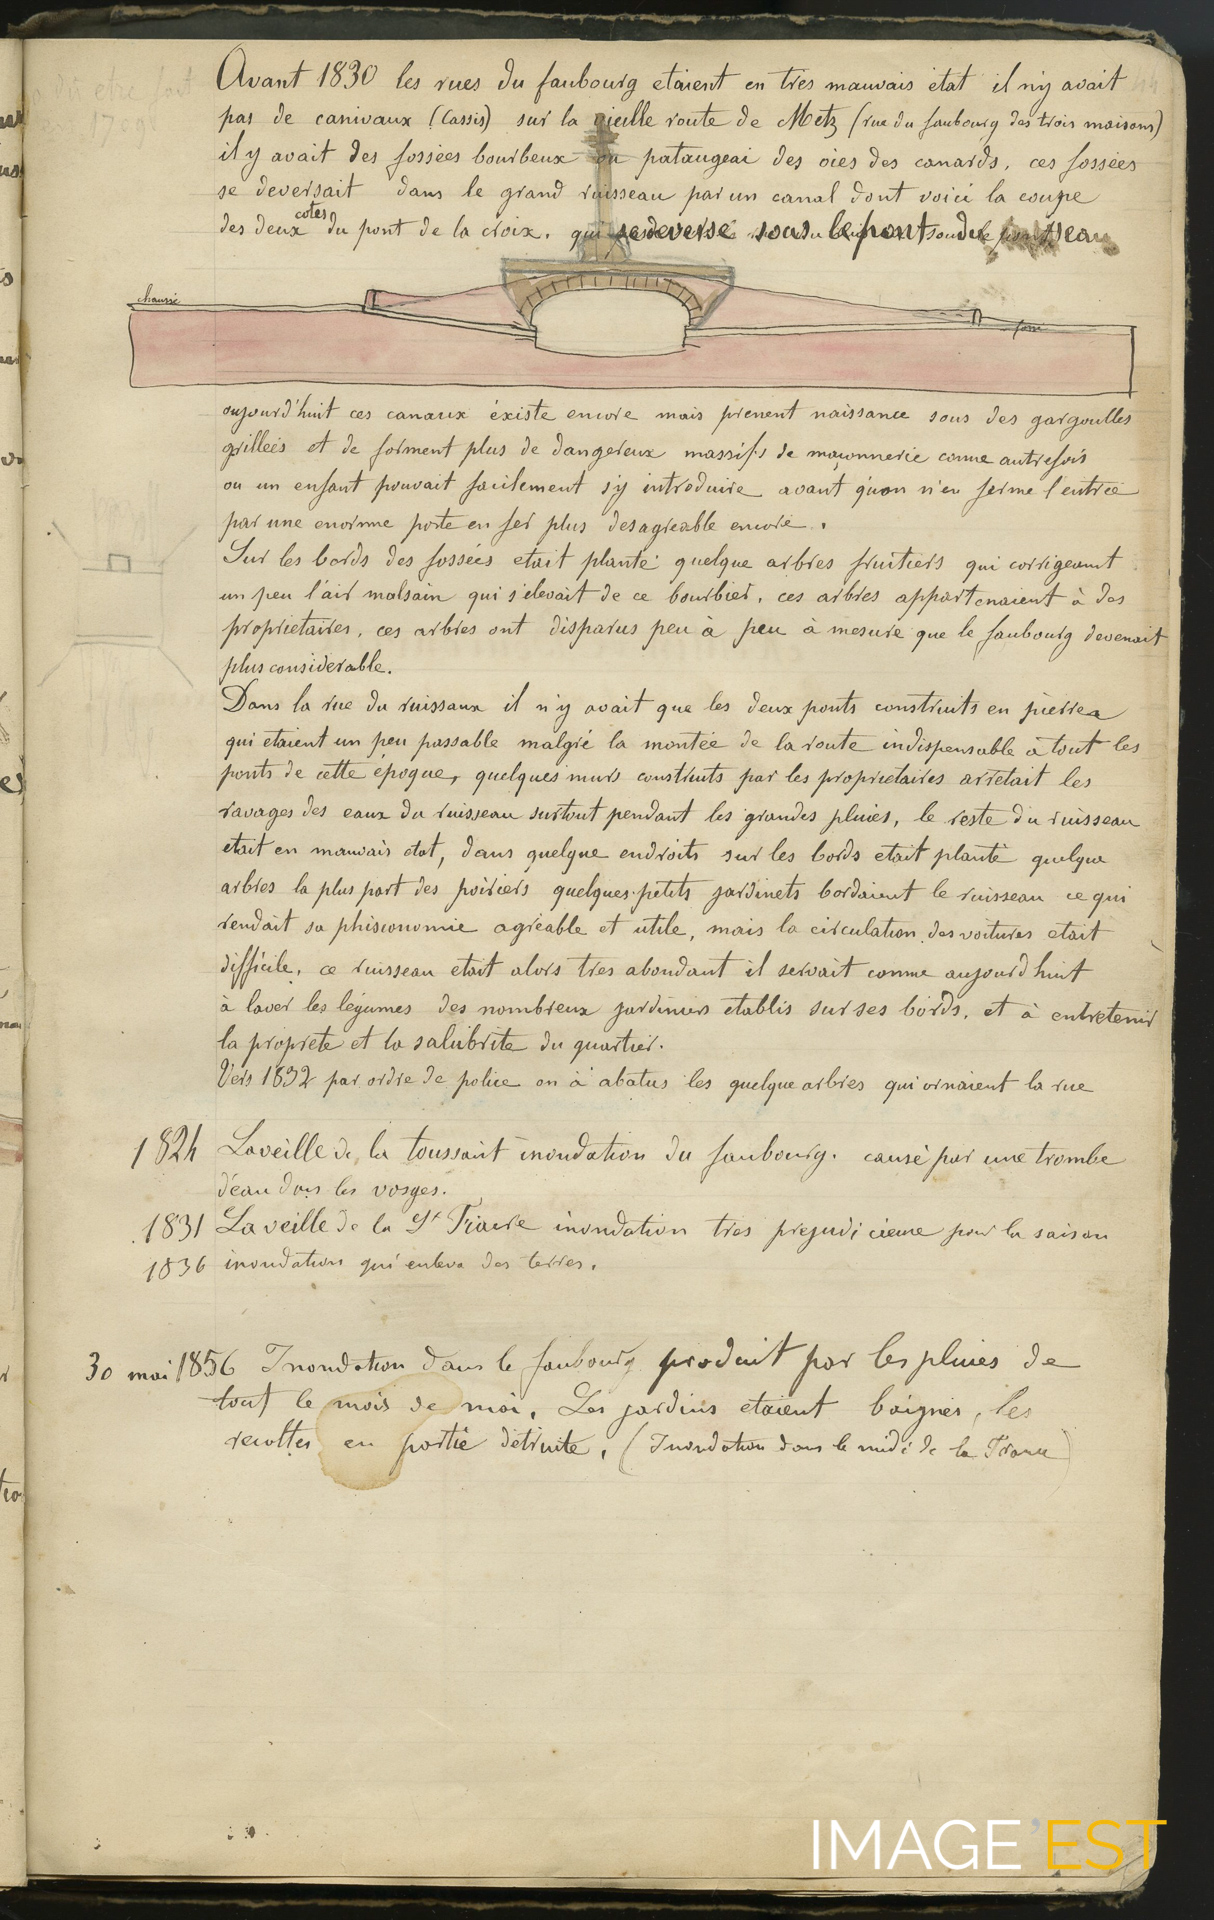 Avant 1830 les rues du faubourg etaient en tres mauvais etat il n'y avait
pas de canivaux (Cassis) sur la vieille route de Metz (rue du faubourg des trois maisons)
il y avait des fossées bourbeux ou pataugeai des oies des canards, ces fossées
se deversait dans le grand ruisseau par un canal dont voici la coupe
des deux cotés du pont de la croix. qui se deverse sous le pont du
chaussée
aujourd'huit ces canaux éxiste encore mais prenent naissance sous des gargouilles
grilleés et de forment plus de dangereux massifs de maçonnerie comme autrefois
ou un enfant pouvait facilement s'y introduire avant qu'on n'en ferme l'entrée
par une enorme porte en fer plus desagreable encore.
Sur les bords des fossées etait planté quelque arbres fruitiers qui corrigeaient
un peu l'air malsain qui s'elevait de ce bourbier, ces arbres appartenaient à des
proprietaires, ces arbres ont disparus peu à peu à mesure que le faubourg devenait
plus considerable.
Dans la rue du ruissaux il n'y avait que les deux ponts construits en pierres
qui etaient un peu passable malgré la montée de la route indispensable à tout les
ponts de cette époque, quelques murs construits par les proprietaires arretait les
ravages des eaux du ruisseau surtout pendant les grandes pluies, le reste du ruisseau
etait en mauvais etat, dans quelque endroits sur les bords etait planté quelque
arbres la plus part des poiriers quelques petits jardinets bordaient le ruisseau ce qui
rendait sa phisionomie agreable et utile, mais la circulation des voitures etait
difficile, ce ruisseau etait alors tres abondant il servait comme aujourd'huit
à laver les légumes des nombreux jardiniers etablis sur ses bords, et à entretenir
la propreté et la salubrité du quartier.
Vers 1832 par ordre de police on à abatus les quelque arbres qui ornaient la rue
1824 La veille de la toussaint inondation du faubourg. causé par une trombe
d'eau dans les vosges.
1831 La veille de la St Fiacre inondation tres prejudicieuse pour la saison
1836 inondation qui enleva des terres.
30 mai 1856 Inondation dans le faubourg produit par les pluies de
tout le mois de mai. Les jardins etaient baignés, les
recoltes en partie détruite. (Inondation dans le midi de la France)
IMAGE'EST